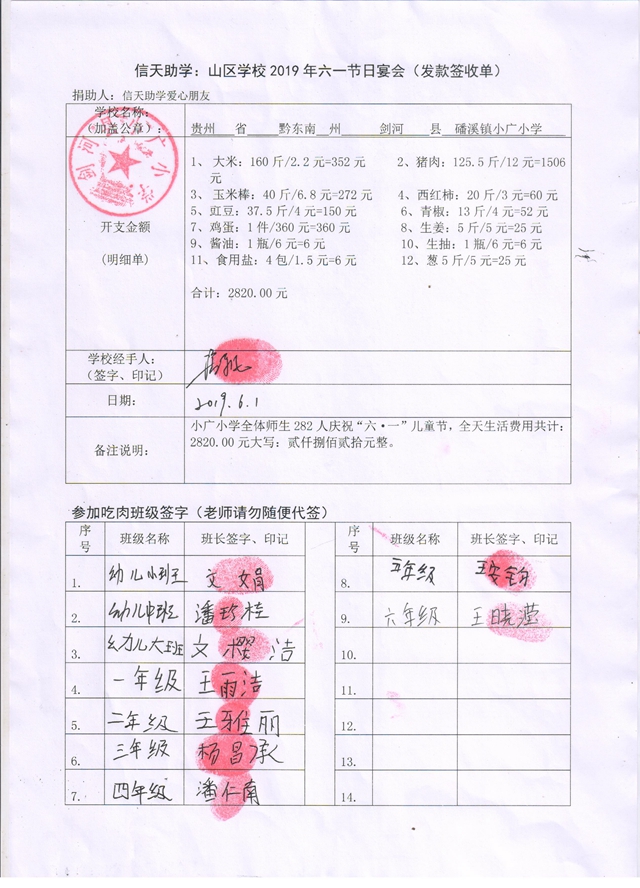 信天助学：山区学校2019年六一节日宴会（发款签收单）
捐助人：信天助学爱心朋友
学校名称：
（加盖公章）：
贵州 省 黔东南 州 剑河 县 磻溪镇小广小学
开支金额
(明细单)
1、大米：160斤/2.2元=352元 2、猪肉：125.5斤/12元=1506元
3、玉米棒：40斤/6.8元=272元 4、西红柿：20斤/3元=60元
5、豇豆：37.5斤/4元=150元 6、青椒：13斤/4元=52元
7、鸡蛋：1件/360元=360元 8、生姜：5斤/5元=25元
9、酱油：1瓶/6元=6元 10、生抽：1瓶/6元=6元
11、食用盐：4包/1.5元=6元 12、葱5斤/5元=25元
合计：2820.00元
学校经手人：
（签字、印记）
日期： 2019.6.1
备注说明：
小广小学全体师生282人庆祝“六·一”儿童节，全天生活费用共计：
2820.00元大写：贰仟捌佰贰拾元整。
参加吃肉班级签字（老师请勿随便代签）
序号 班级名称 班长签字、印记 序号 班级名称 班长签字、印记
1. 幼儿小班 文娟 8. 五年级
2. 幼儿中班 潘珍桂 9. 六年级 王晓滢
3. 幼儿大班 文樱洁 10.
4. 一年级 王雨洁 11.
5. 二年级 王雅丽 12.
6. 三年级 杨昌承 13.
7. 四年级 潘仁南 14.